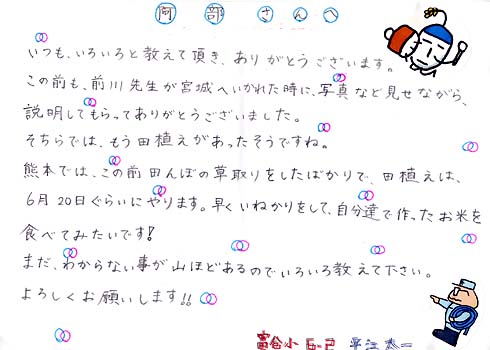 阿部さんへ
いつも、いろいろと教えて頂き、ありがとうございます。
この前も、前川先生が宮城へいかれた時に、写真など見せながら、
説明してもらってありがとうございました。
そちらでは、もう田植えがあったそうですね。
熊本では、この前田んぼの草取りをしたばかりで、田植えは、
6月20日ぐらいにやります。早くいねかりをして、自分達で作ったお米を
食べてみたいです!
まだ、わからない事が山ほどあるのでいろいろ教えて下さい。
よろしくお願いします!!
富合小 6-2